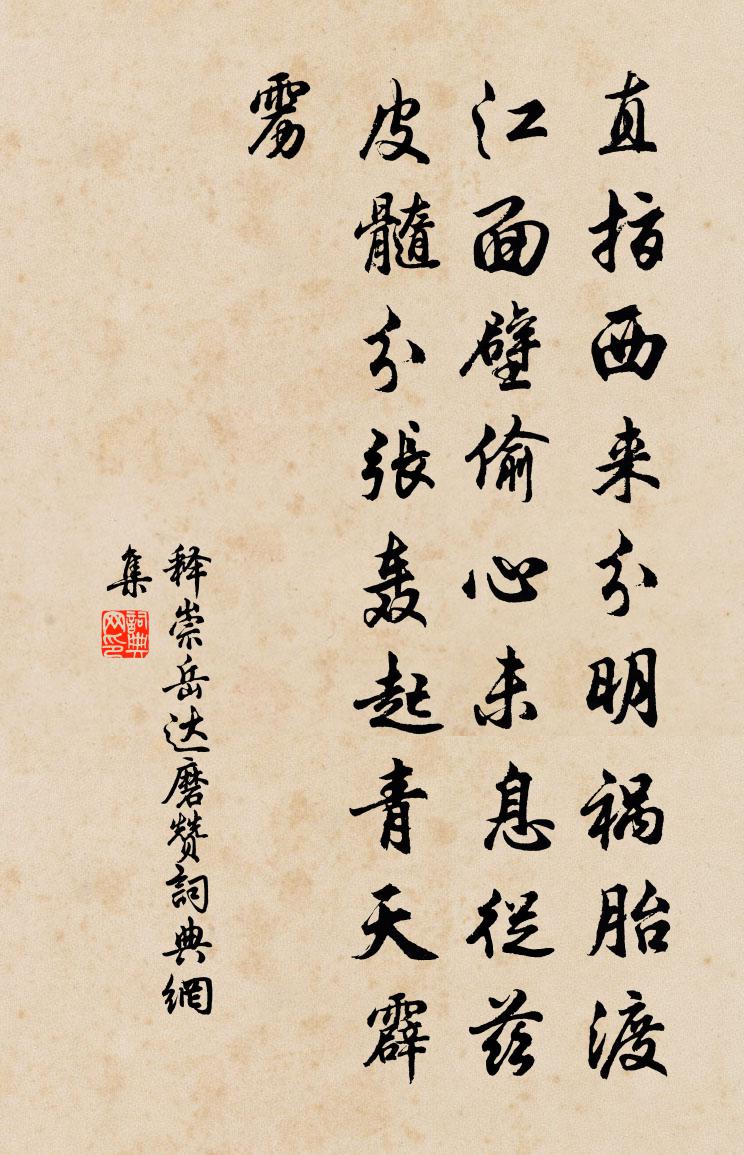 直指西来分明祸胎渡
江面壁偷心未息從兹
皮髓分張轰起青天霹
雳
释崇岳达磨赞詞典網
集
詞典网印